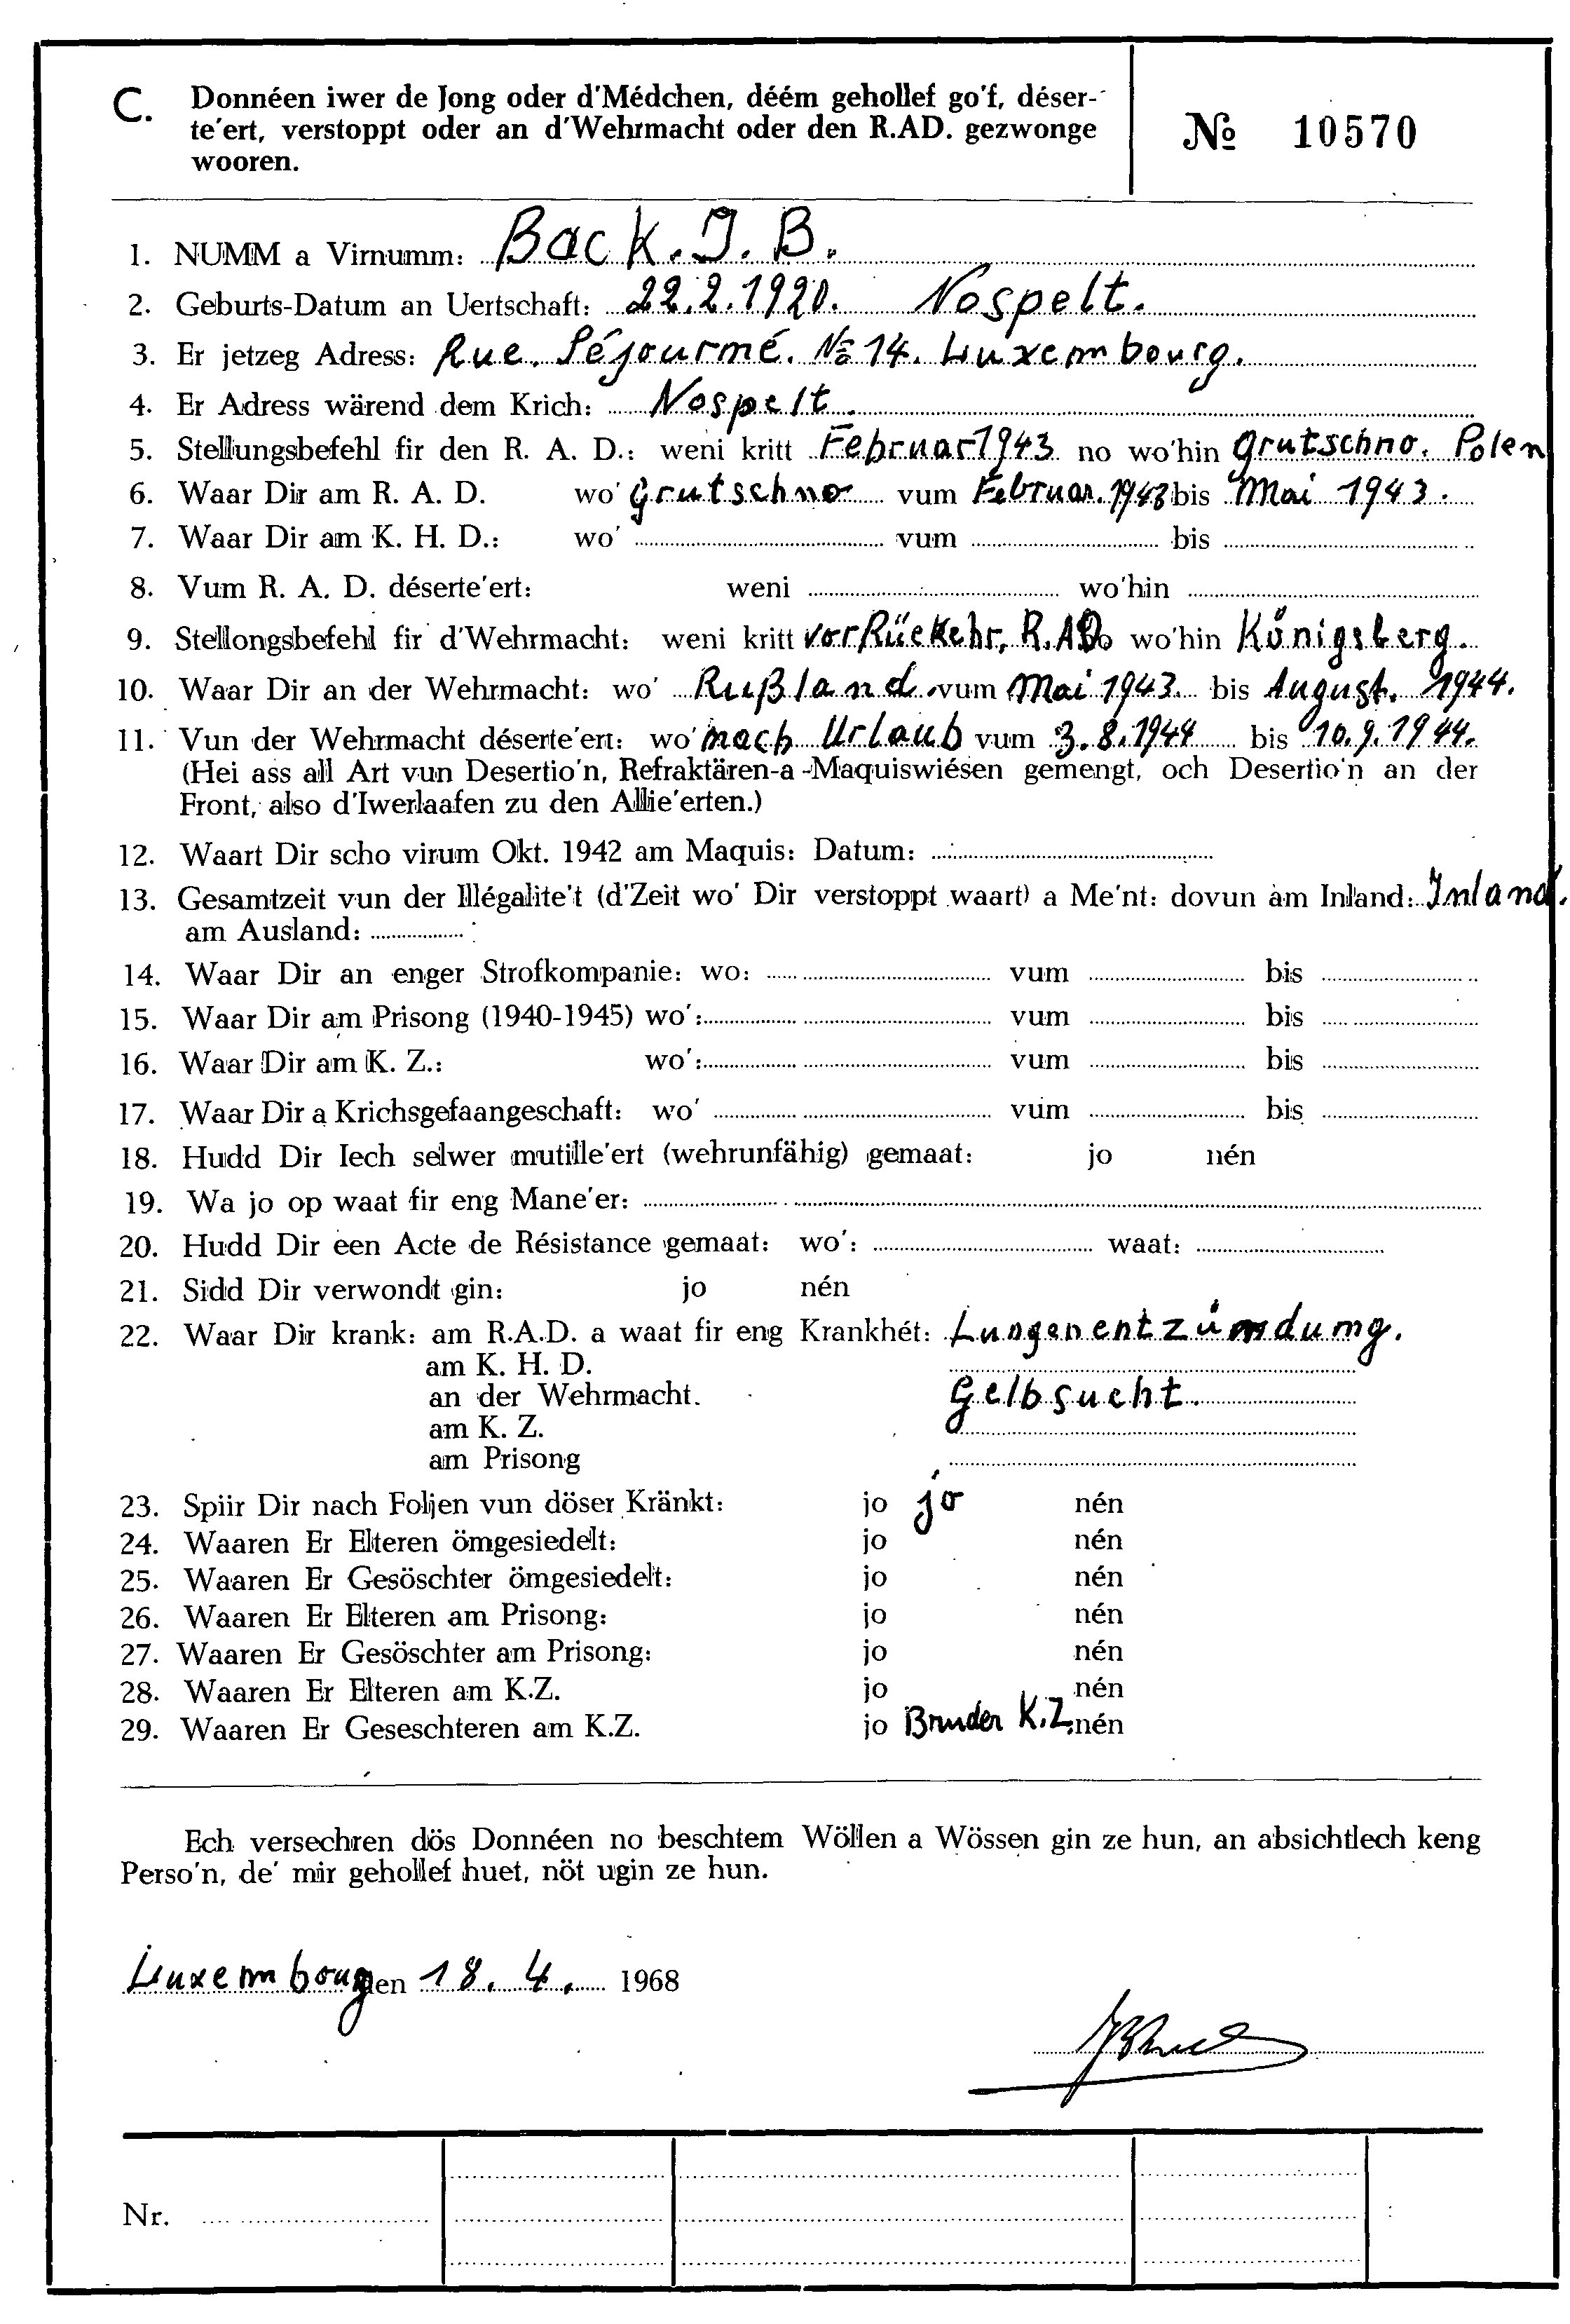 C. Donnéen iwer de Jong oder d'Médchen, déém gehollef go'f, déser-
te'ert, verstoppt oder an d'Wehrmacht oder den R.AD. gezwonge
wooren.
№ 10570
1. NUMM a Virnumm: Back. J. B.
2. Geburts-Datum an Uertschaft: 22.2.1920. Nospelt.
3. Er jetzeg Adress: Rue. Séjourmé. № 14. Luxembourg.
4. Er Adress wärend dem Krich: Nospelt.
5. Stellungsbefehl fir den R. A. D.: weni kritt Februar 1943 no wo'hin Grutschno. Polen
6. Waar Dir am R. A. D. wo' Grutschno vum Februar. 1943 bis Mai 1943.
7. Waar Dir am K. H. D.: wo' vum bis
8. Vum R. A. D. déserte'ert: weni wo'hin
9. Stellongsbefehl fir d'Wehrmacht: weni kritt vor Rückkehr, R.AD. wo'hin Königsberg.
10. Waar Dir an der Wehrmacht: wo' Rußland. vum Mai 1943. bis August. 1944.
11. Vun der Wehrmacht déserte'ert: wo' nach Urlaub vum 3.8.1944 bis 10.9.1944.
(Hei ass all Art vun Desertio'n, Refraktären-a-Maquiswiésen gemengt, och Desertio'n an der
Front, also d'Iwerlaafen zu den Allie'erten.)
12. Waart Dir scho virum Okt. 1942 am Maquis: Datum:
13. Gesamtzeit vun der Illégalite't (d'Zeit wo' Dir verstoppt waart) a Me'nt: dovun am Inland: Inland.
am Ausland:
14. Waar Dir an enger Strofkompanie: wo: vum bis
15. Waar Dir am Prisong (1940-1945) wo': vum bis
16. Waar Dir am K. Z.: wo': vum bis
17. Waar Dir a Krichsgefaangeschaft: wo' vum bis
18. Hudd Dir Iech selwer mutille'ert (wehrunfähig) gemaat: jo nén
19. Wa jo op waat fir eng Mane'er:
20. Hudd Dir een Acte de Résistance gemaat: wo': waat:
21. Sidd Dir verwondt gin: jo nén
22. Waar Dir krank: am R.A.D. a waat fir eng Krankhét: Lungenentzündung.
am K. H. D.
an der Wehrmacht. Gelbsucht.
am K. Z.
am Prisong
23. Spiir Dir nach Foljen vun döser Kränkt: jo jo nén
24. Waaren Er Elteren ömgesiedelt: jo nén
25. Waaren Er Gesöschter ömgesiedelt: jo nén
26. Waaren Er Elteren am Prisong: jo nén
27. Waaren Er Gesöschter am Prisong: jo nén
28. Waaren Er Elteren am K.Z. jo nén
29. Waaren Er Geseschteren am K.Z. jo Bruder K.Z. nén
Ech versechren dös Donnéen no beschtem Wöllen a Wössen gin ze hun, an absichtlech keng
Perso'n, de' mir gehollef huet, nöt ugin ze hun.
Luxembourg den 18. 4. 1968
Nr.